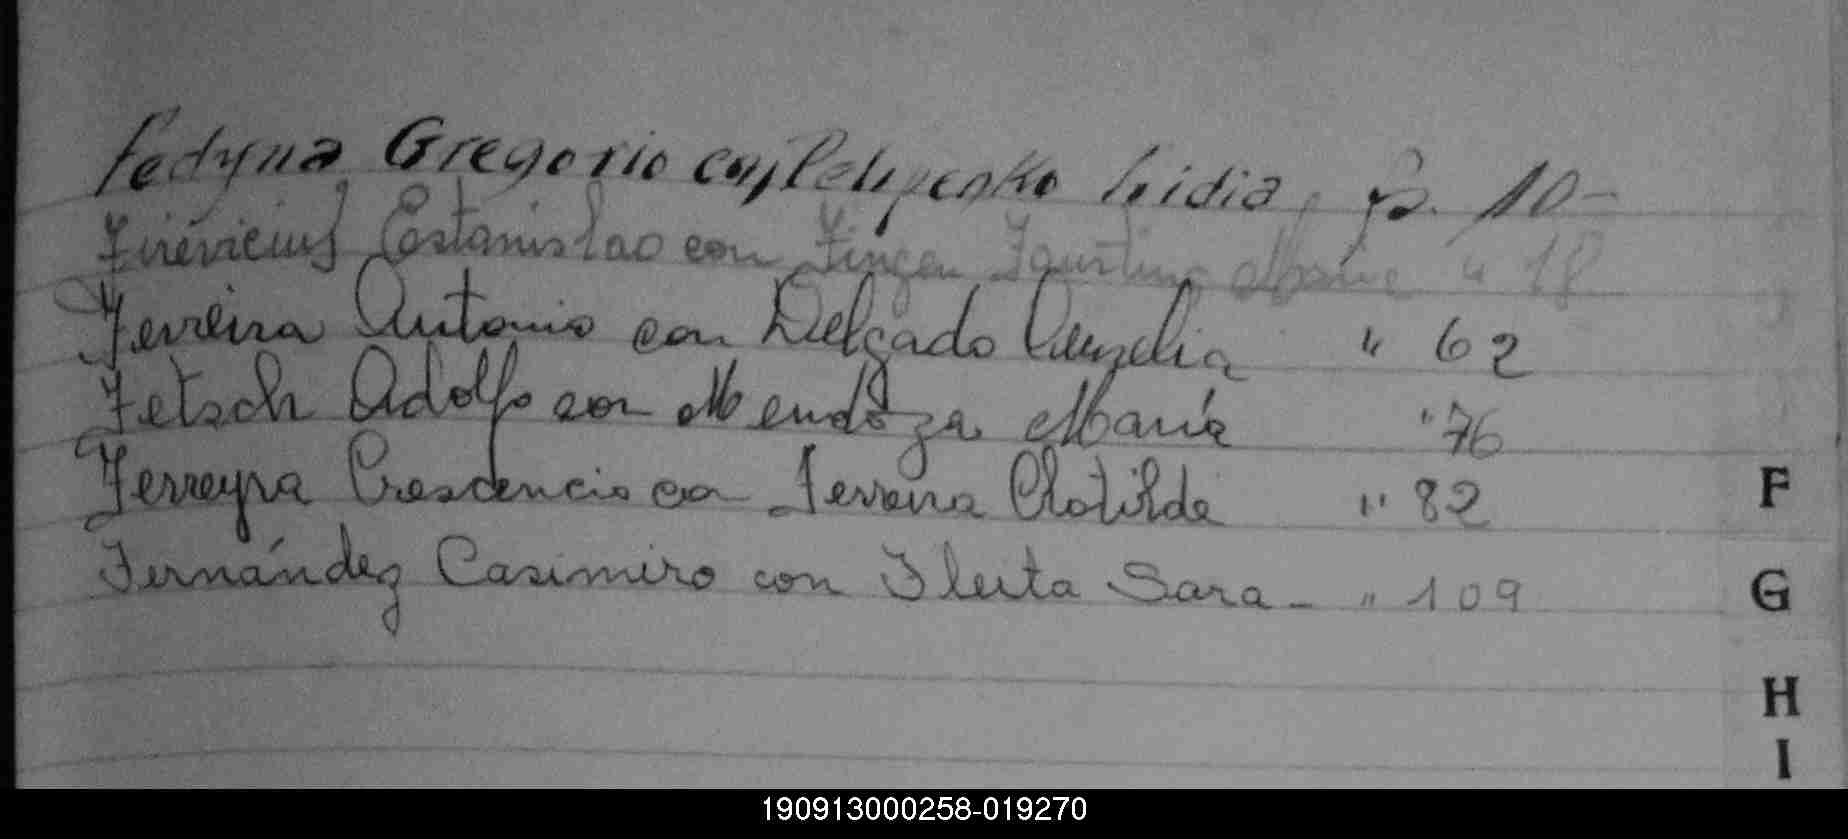 Fedyna Gregorio con Pelypenko Lidia, fs. 10-
Estanislao con " 18
Ferreira Antonio con Delgado " 62
Fetsch Adolfo con Mendoza María " 76
Ferreyra Crescencio con Ferreira Clotilde " 82
Fernández Casimiro con Fleita Sara - " 109
F
G
H
I
190913000258-019270